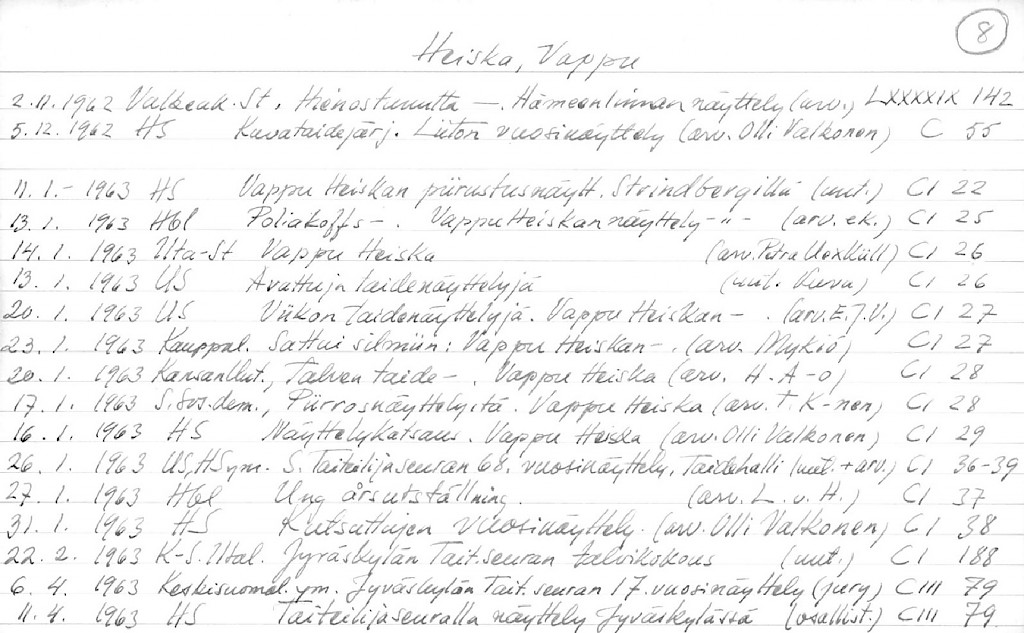 8
Heiska, Vappu
2.11.1962 Valkeak. St. Hienostunutta —. Hämeenlinnan näyttely (arv.) LXXXXIX 142
5.12.1962 HS Kuvataidejärj. Liiton vuosinäyttely (arv. Olli Valkonen) C 55
11.1.- 1963 HS Vappu Heiskan piirustusnäytt. Strindbergillä (uut.) CI 22
13.1. 1963 Hbl Poliakoffs – . Vappu Heiskan näyttely -"- (arv. ek.) CI 25
14.1. 1963 Uta-St Vappu Heiska (arv. Petra Uexküll) CI 26
13.1. 1963 US Avattuja taidenäyttelyjä (uut. Kuva) CI 26
20.1. 1963 US Viikon taidenäyttelyjä. Vappu Heiskan – . (arv. E.J.V.) CI 27
23.1. 1963 Kauppal. Sattui silmiin: Vappu Heiskan – . (arv. Mykiö) CI 27
20.1. 1963 Kansanllut., Talven taide – . Vappu Heiska (arv. H. A-o) CI 28
17.1. 1963 S.Sos.dem., Piirrosnäyttelyitä. Vappu Heiska (arv. T. K-nen) CI 28
16.1. 1963 HS Näyttelykatsaus. Vappu Heiska (arv. Olli Valkonen) CI 29
26.1. 1963 US, HS ym. S. Taiteilijaseuran 68. vuosinäyttely, Taidehalli (uut. + arv.) CI 36-39
27.1. 1963 Hbl Ung årsutställning. (arv. L. v. H.) CI 37
31.1. 1963 HS Kutsuttujen vuosinäyttely. (arv. Olli Valkonen) CI 38
22.2. 1963 K-S. Iltal. Jyväskylän Tait.seuran talvikokous (uut.) CI 188
6.4. 1963 Keskisuomal. ym. Jyväskylän Tait.seuran 17. vuosinäyttely (jury) CIII 79
11.4. 1963 HS Taiteilijaseuralla näyttely Jyväskylässä (osallist.) CIII 79